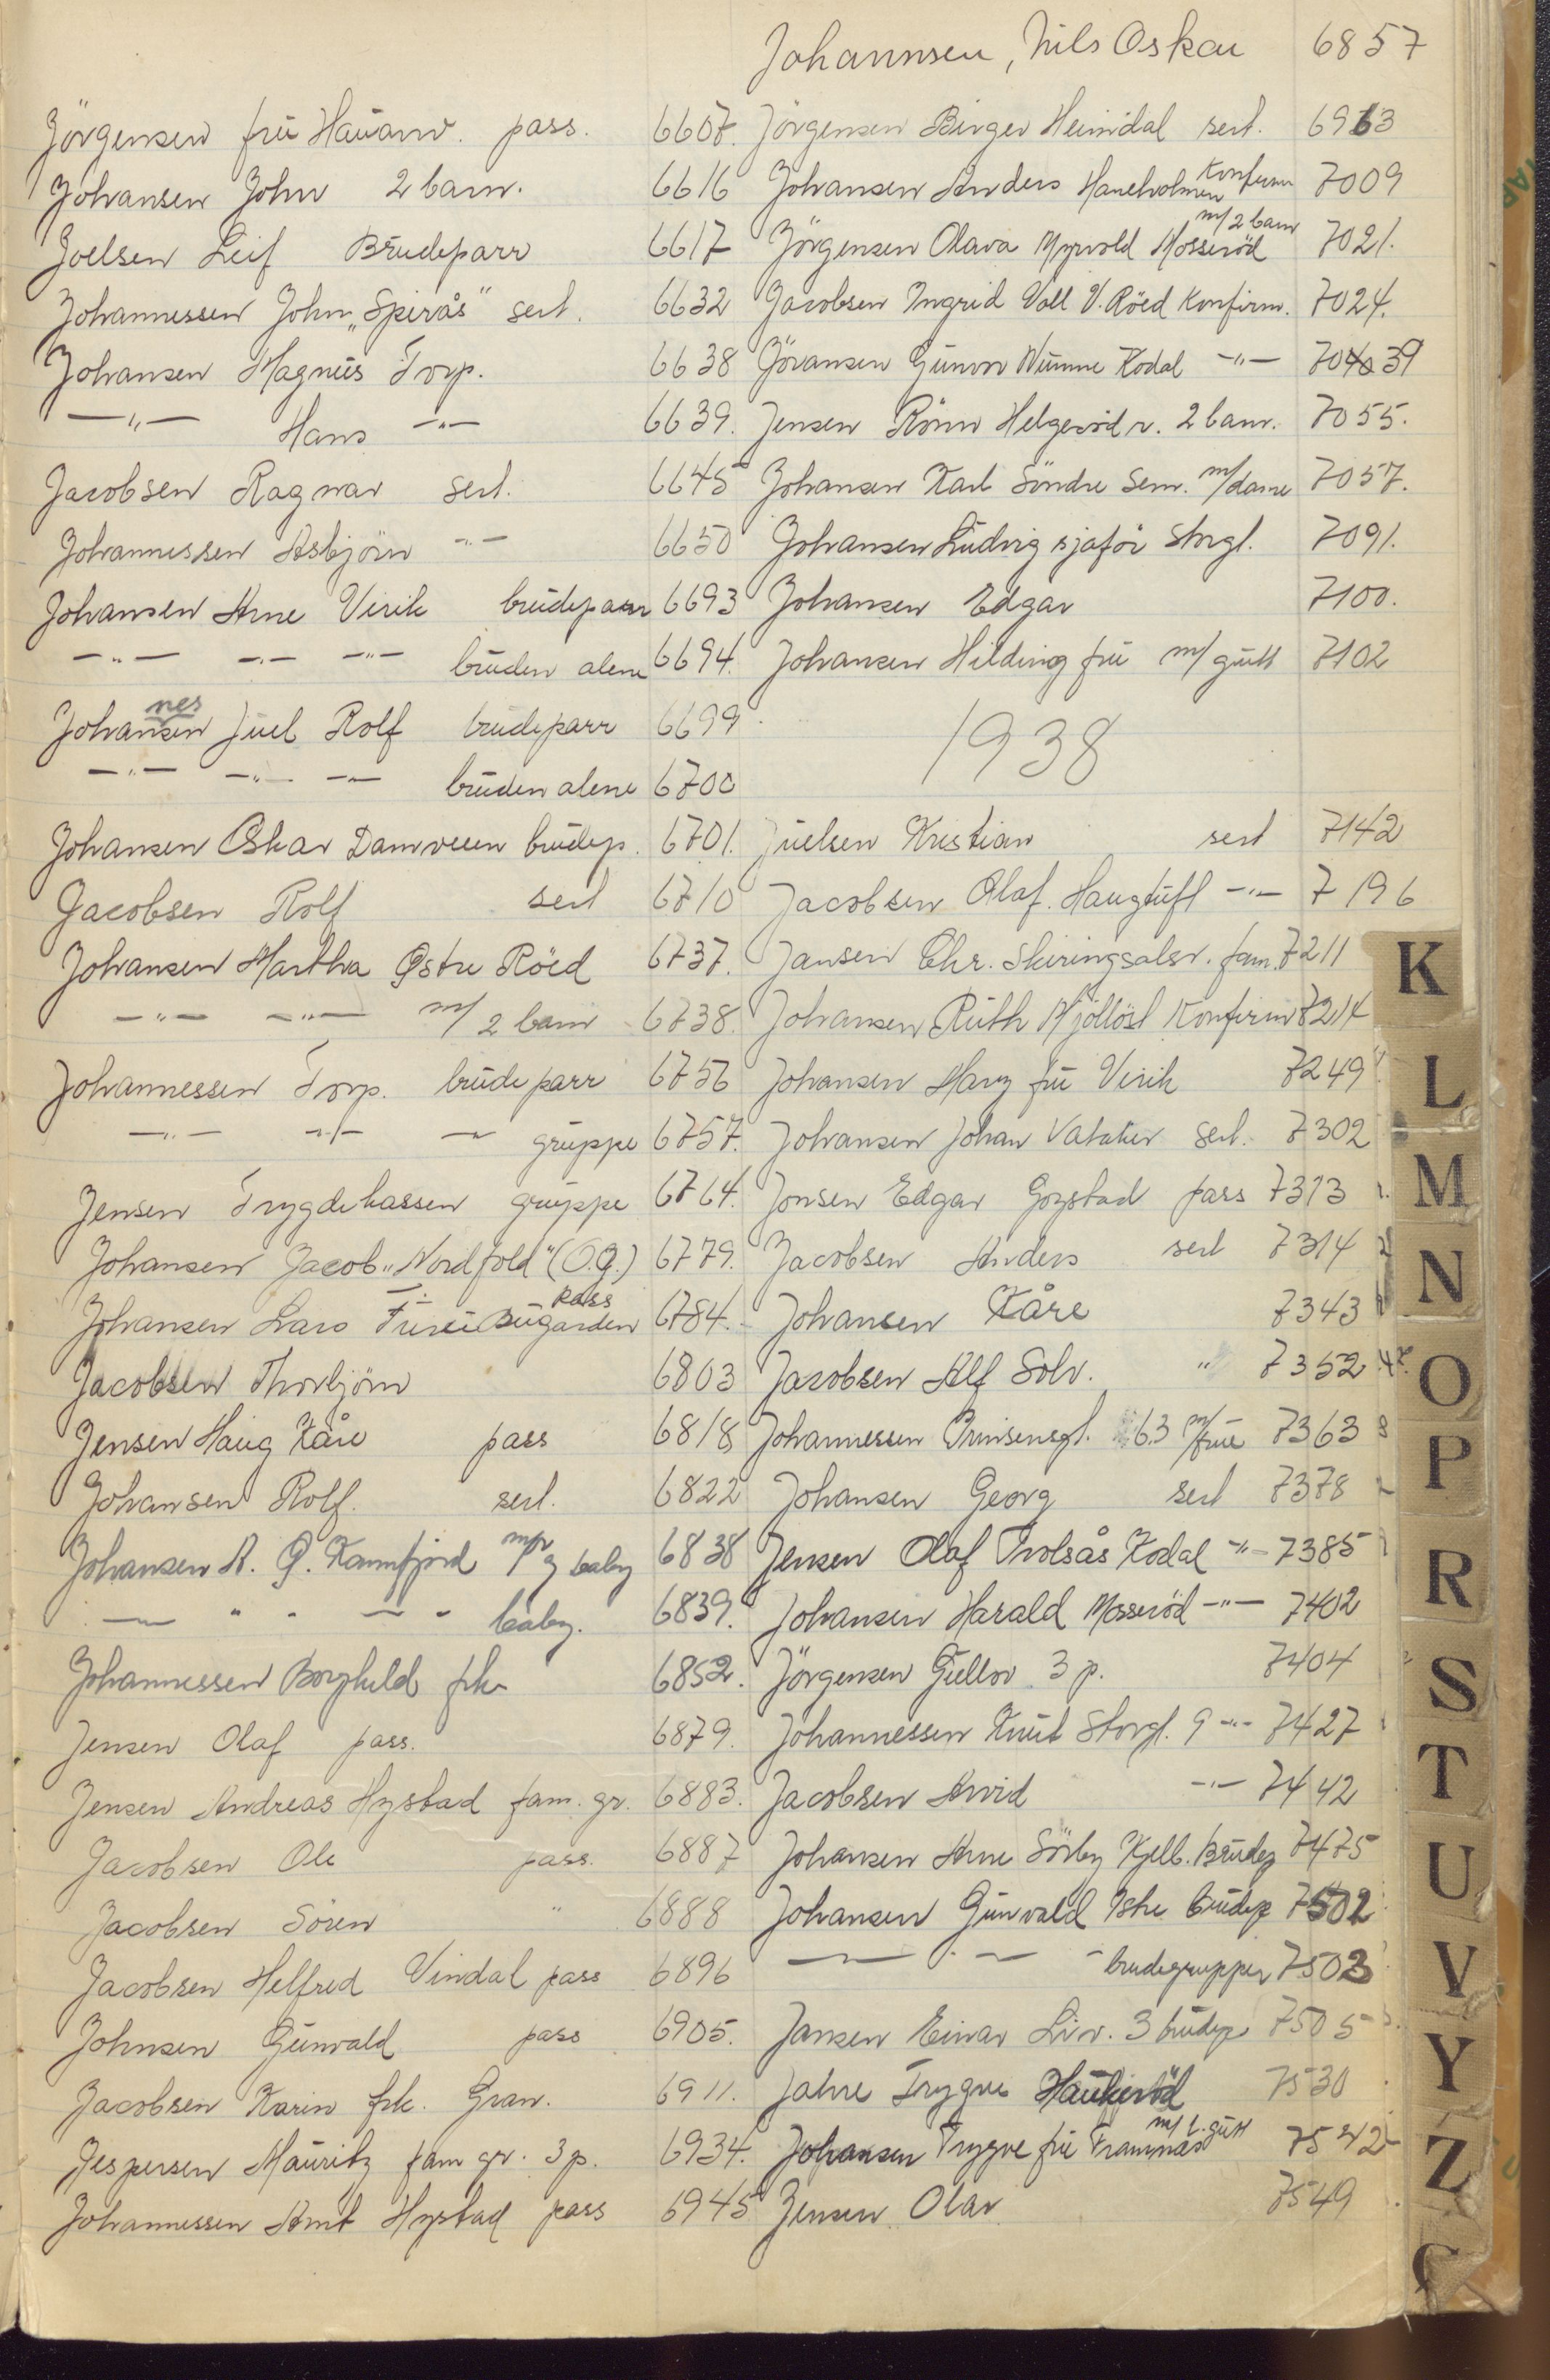 Johannsen, Nils Oskar 6857
Jörgensen frü Haüanv. pass. 6607.
Johansen John 2 barn. 6616
Joelsen Leif Brüdeparr 6617
Johannessen John „Spirås" sert. 6632
Johansen Magnüs Torp. 6638
—"— Hans —"— 6639.
Jacobsen Ragnar sert. 6645
Johannessen Asbjörn —"— 6650
Johansen Arne Virik brüdeparr 6693
—"— —"— —"— brüden alene 6694.
Johansen nes Jüel Rolf brüdeparr 6699
—"— —"— —"— brüden alene 6700
Johansen Oskar Damveien brüdep. 6701.
Jacobsen Rolf sert 6710
Johansen Martha Østre Röed 6737.
—"— —"— m/2 barn 6738.
Johannessen Torp. brüdeparr 6756
—"— —"— — grüppe 6757.
Jensen Trygdekassen grüppe 6764.
Johansen Jacob „Nordfold" (O.G.) 6779.
Johansen Lars Bügården Pass 6784.
Jacobsen Thorbjörn 6803
Jensen Haüg Kåre pass 6818
Johansen Rolf. sert. 6822
Johansen A. G. Kamfjord baby 6838
— " " — " baby. 6839.
Johannessen Borghild frk 6852.
Jensen Olaf pass. 6879.
Jensen Andreas Hystad fam. gr. 6883.
Jacobsen Ole pass. 6887
Jacobsen Sören " 6888
Jacobsen Helfred Vindal pass 6896
Johnsen Günvald pass 6905.
Jacobsen Karin frk. Gran. 6911.
Jespersen Maüritz fam gr. 3 p. 6934.
Johannessen Arnt Hystad pass 6945
Jörgensen Birger Heimdal sert. 6963
Johansen Anders Haneholmen Konfirm 7009
Jörgensen Olava Myrvold Mosseröd m/2 barn 7021.
Jacobsen Ingrid Voll V. Röed Konfirm. 7024.
Jöransen Günvor Kodal —"— 7039
Jensen Rönn Helgeröd v. 2 barn. 7055.
Johansen Karl Söndre Sem. m/dame 7057.
Johansen Lüdvig sjafør Storgt. 7091.
Johansen Edgar 7100.
Johansen Hilding frü m/ gütt 7102
1938
Jüelsen Kristian sert 7142
Jacobsen Olaf. Haugtüft —"— 7196
Jansen Chr. Skiringsalsv. fam. 7211
Johansen Rüth Mjöllöst Konfirm 7214
Johansen Hary frü Virik 7249
Johansen Johan Vataker sert. 7302
Jonsen Edgar Gogstad pass 7313
Jacobsen Anders sert 7314
Johansen Kåre 7343
Jacobsen Alf Solv. " 7352
Johannessen Prinsensgt. 63 m/früe 7363
Johansen Georg sert 7378
Jensen Olaf Trolsås Kodal —"— 7385
Johansen Harald Mosseröd —"— 7402
Jörgensen Güllov 3 p. 7404
Johannessen Knüt Storgt. 9 —"— 7427
Jacobsen Arvid —"— 7442
Johansen Arne Sörby Kjell. Brüdep 7475
Johansen Günvald Istre brüdep 7502
— " — " brudegrupper 7503
Jansen Einar Liv. 3 brüdep 7505
Jahre Trygve Haükeröd 7530
Johansen Trygve frü Framnæs m/ l. gütt 7542
Jensen Olav 7549
K
L
M
N
O
P
R
S
T
U
V
Y
Z